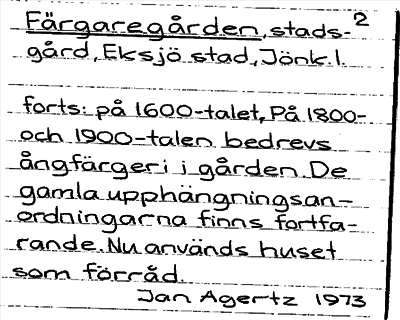 Färgaregården, stads- 2
gård, Eksjö stad, Jönk. l.
forts: på 1600-talet, På 1800-
och 1900-talen bedrevs
ångfärgeri i gården. De
gamla upphängningsan-
ordningarna finns fortfa-
rande. Nu används huset
som förråd.
Jan Agertz 1973